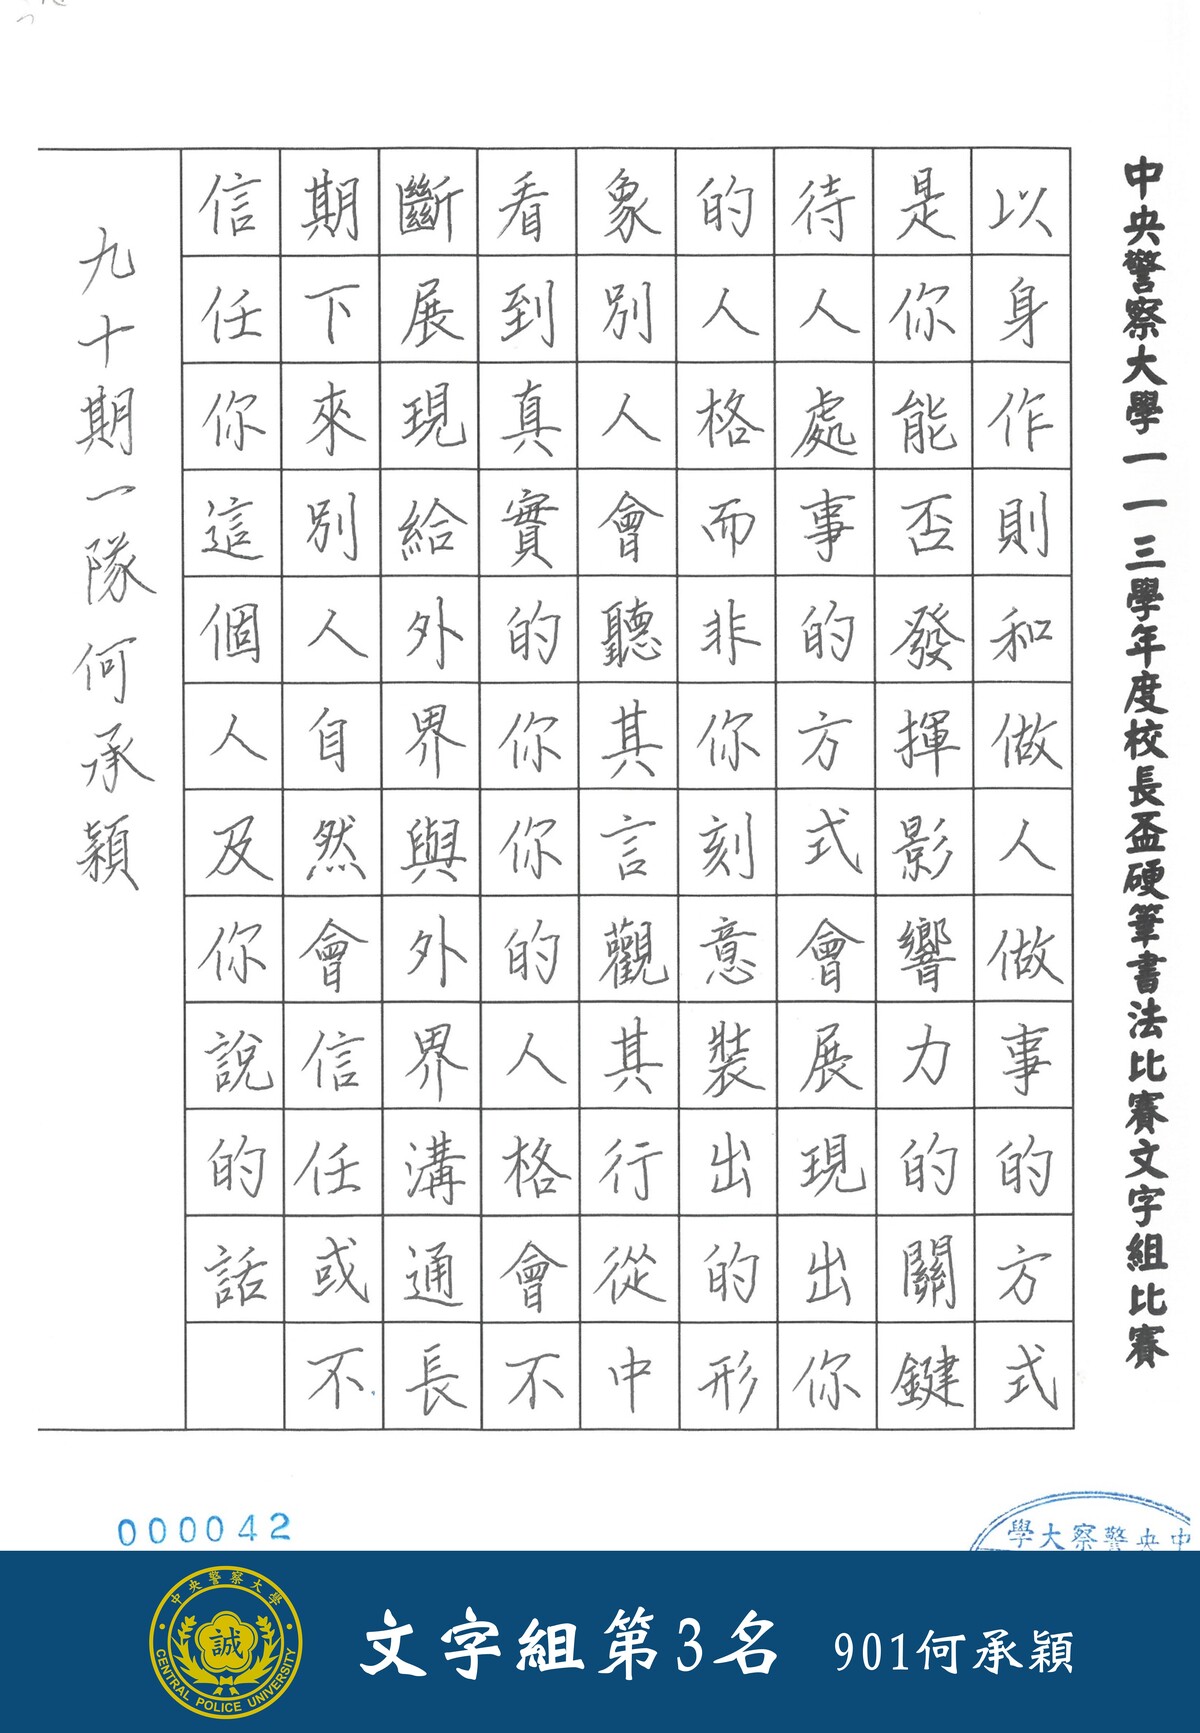 中央警察大學一一三學年度校長盃硬筆書法比賽文字組比賽
以身作則和做人做事的方式
是你能否發揮影響力的關鍵
待人處事的方式會展現出你
的人格而非你刻意裝出的形
象別人會聽其言觀其行從中
看到真實的你你的人格會不
斷展現給外界與外界溝通長
期下來別人自然會信任或不
信任你這個人及你說的話
九十期一隊何承穎
000042
中央警察大學
中央警察大學
誠
CENTRAL POLICE UNIVERSITY
文字組第3名 901何承穎